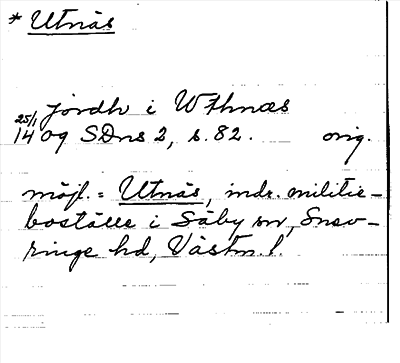 * Utnäs
jordh i Wthnæs
25/1 1409 SDns 2, s. 82. orig.
möjl. = Utnäs, indr. militie-
boställe i Säby sn, Snev-
ringe hd, Västm. l.